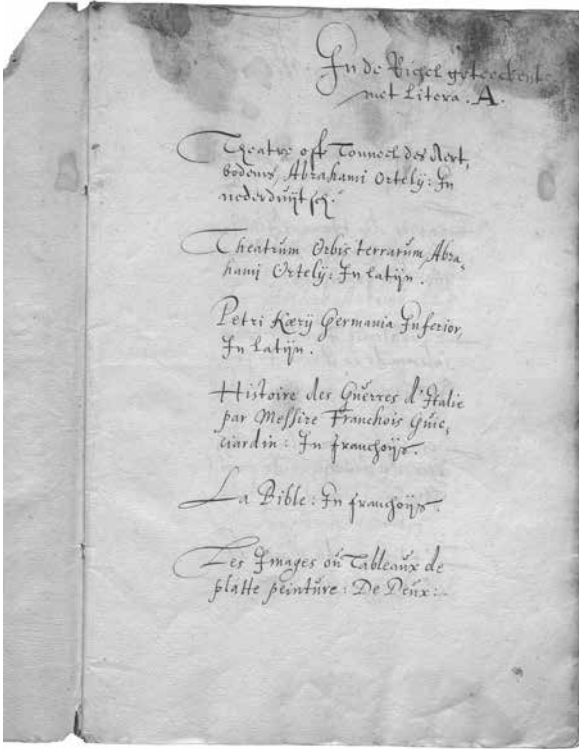 In de Richel geteeckent
met Litera. A.
Theatre off Tonneel des Aert,
bodems, Abrahami Ortelÿ: In
nederduÿtsch.
Theatrum Orbis terrarum, Abra,
hami Ortelÿ: In latÿn.
Petri Kærÿ Germania Inferior,
In Latÿn.
Histoire des Guerres d'Italie
par Messire Franchois Guic,
ciardin: In franchoÿs.
La Bible: In franchoÿs.
Les Images oú Tableaux de
platte peinture: De Deux: